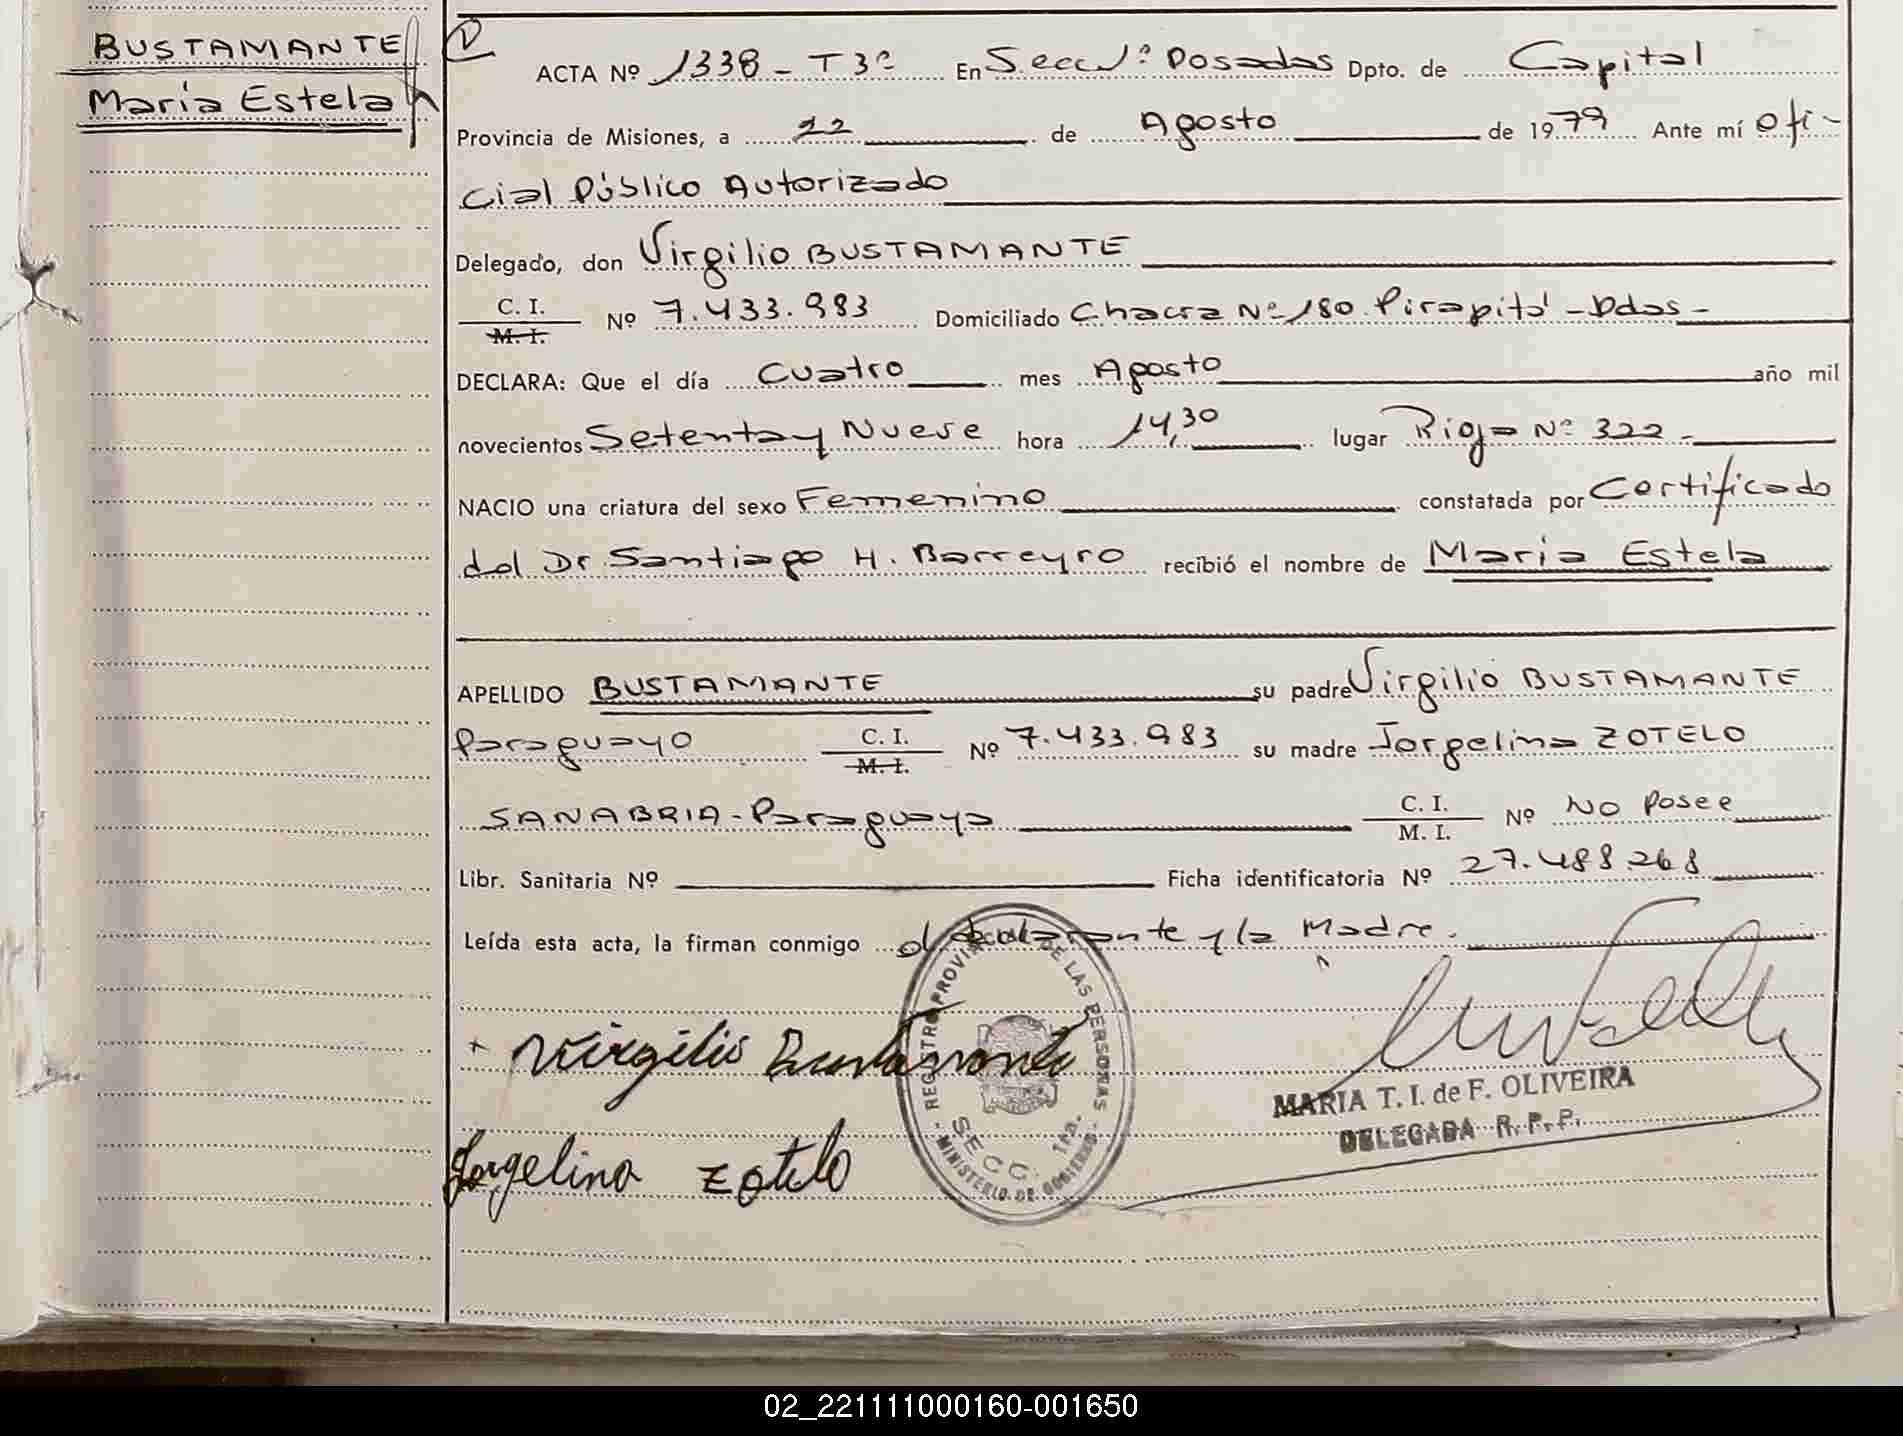 BUSTAMANTE
María Estela
ACTA Nº 1338 - T 3º En Secc 1ª Posadas Dpto. de Capital
Provincia de Misiones, a 22 de Agosto de 1979 Ante mí Ofi-
cial Público Autorizado
Delegado, don Virgilio BUSTAMANTE
C. I.
M. I.
Nº 7.433.983 Domiciliado Chacra Nº 180 Pirapitá - Pdas -
DECLARA: Que el día Cuatro mes Agosto año mil
novecientos Setenta y Nueve hora 14,30 lugar Rioja Nº 322 -
NACIO una criatura del sexo Femenino constatada por Certificado
del Dr. Santiago H. Barreyro recibió el nombre de María Estela
APELLIDO BUSTAMANTE su padre Virgilio BUSTAMANTE
Paraguayo C. I. M. I. Nº 7.433.983 su madre Jorgelina ZOTELO
SANABRIA - Paraguaya C. I. M. I. Nº No Posee
Libr. Sanitaria Nº Ficha identificatoria Nº 27.488.268
Leída esta acta, la firman conmigo el declarante y la Madre.
REGISTRO PROVINCIAL DE LAS PERSONAS
SECC. 1ra.
- MINISTERIO DE GOBIERNO -
+ Virgilio Bustamante
MARIA T. I. de F. OLIVEIRA
DELEGADA R. P. P.
Jorgelina Zotelo
02_221111000160-001650